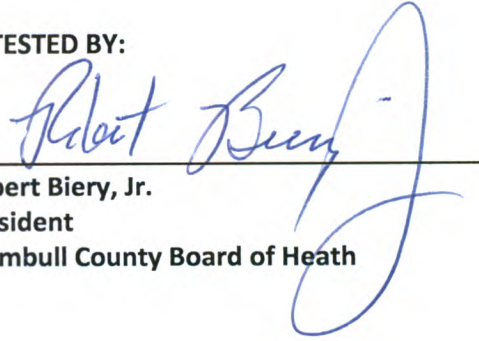 TESTED BY:
Robert Biery, Jr.
bert Biery, Jr.
sident
mbull County Board of Heath